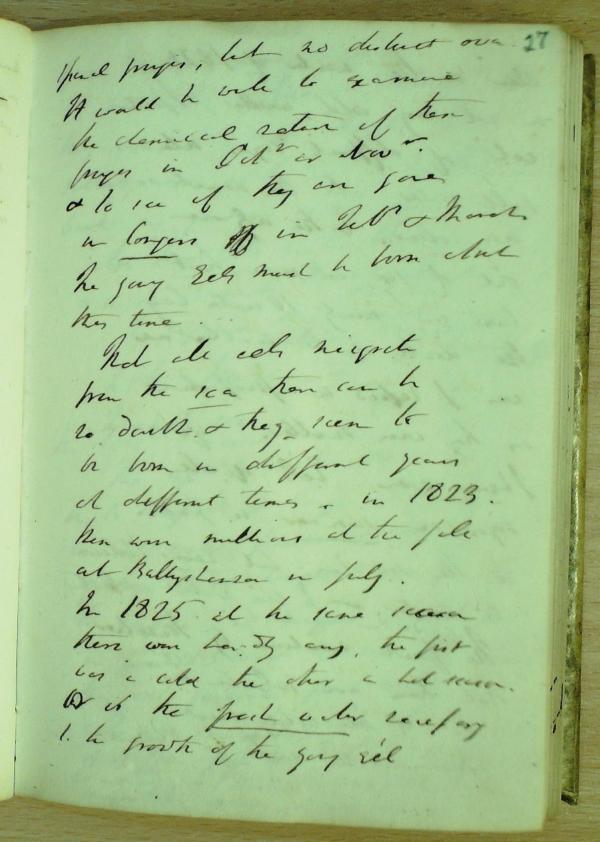 27
fringes, but no distinct ova
It would be well to examine
the chemical nature of these
fringes in Octr or Novr.
& to see if they are gone
in Congers in Feby & March
The young Eels must be born about
this time.
That all eels migrate
from the sea there can be
no doubt & they seem to
be born in different years
at different times. in 1823.
there were millions at the fall
at Ballyshannon in July.
In 1825 at the same season
there were hardly any, the first
was a cold the other a hot season.
Or is the fresh water necessary
to the growth of the young Eel